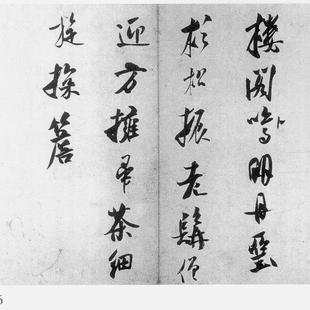 樓閣鳴明丹堊
杉松振老髯僧
迎方擁帚茶細
旋探簷